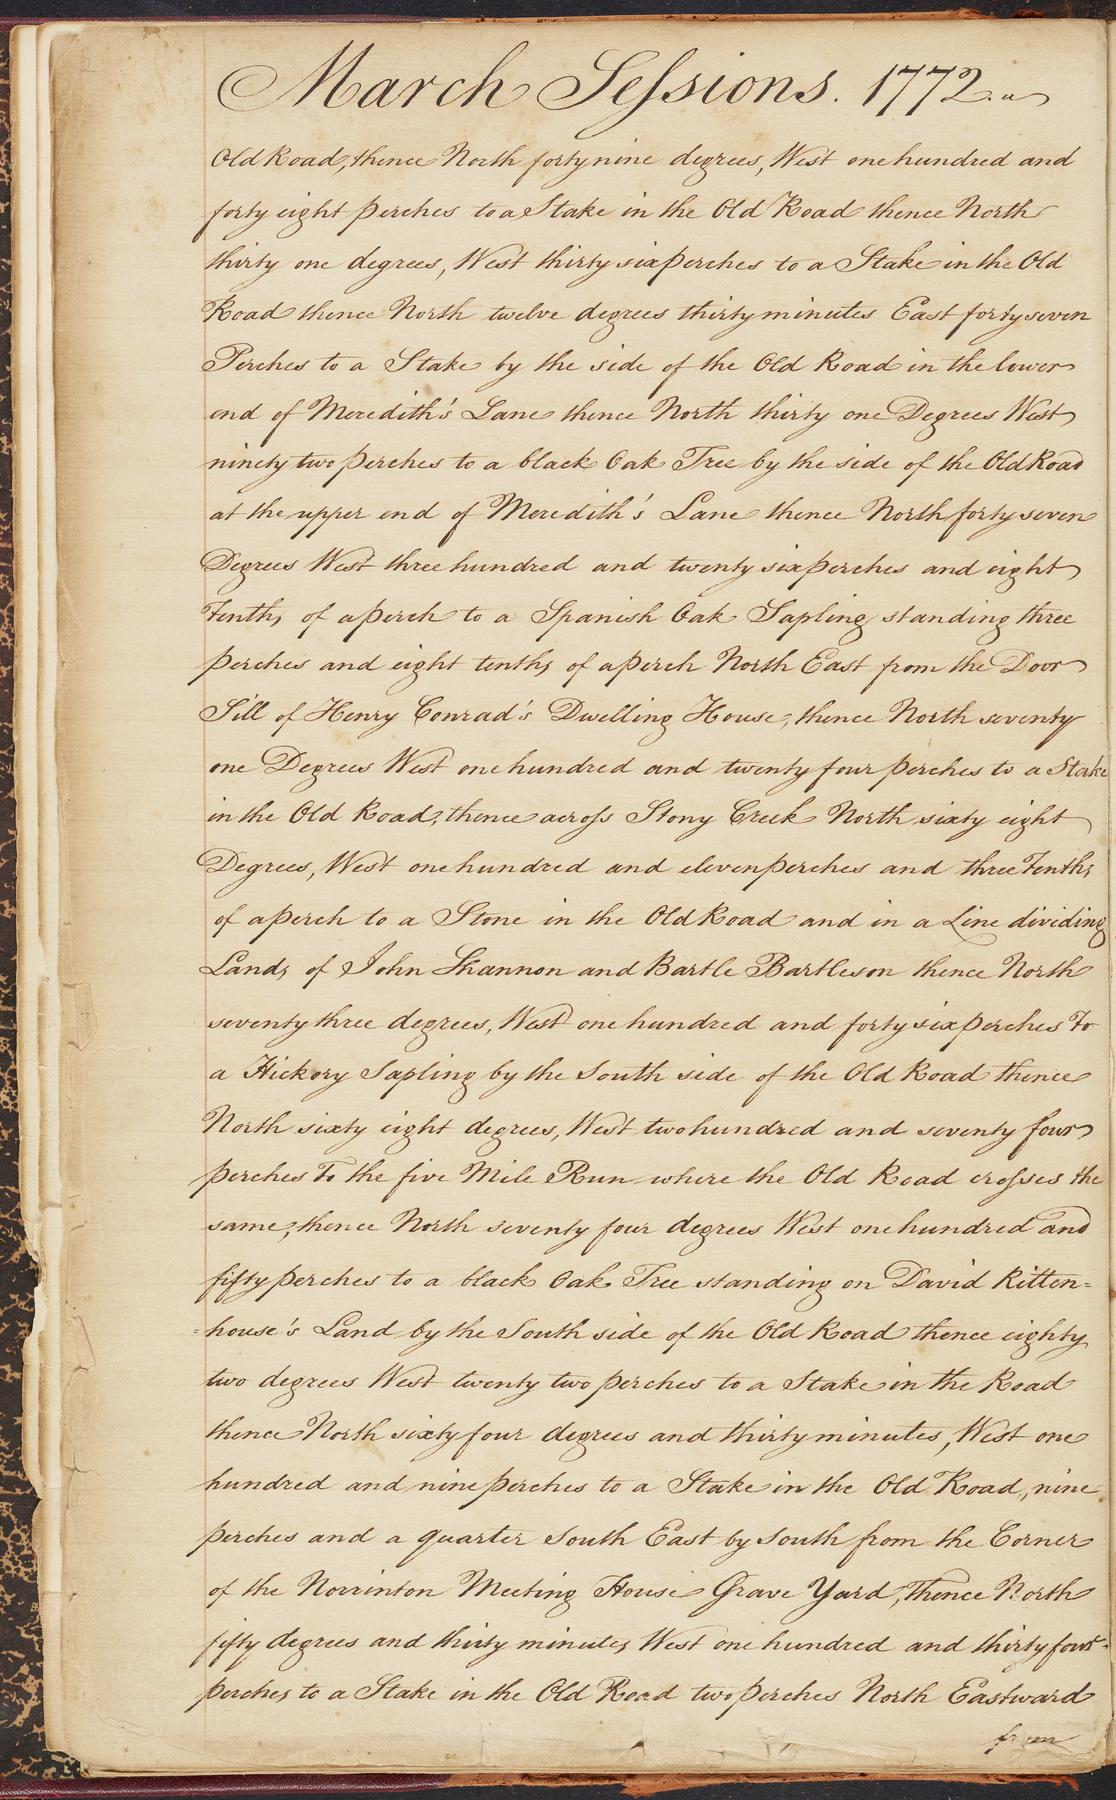 March Sessions. 1772.
Old Road, thence North forty nine degrees, West one hundred and
forty eight perches to a Stake in the Old Road thence North
thirty one degrees, West thirty six perches to a Stake in the Old
Road thence North twelve degrees thirty minutes East forty seven
Perches to a Stake by the side of the Old Road in the lower
end of Meredith's Lane thence North thirty one Degrees West
ninety two perches to a black Oak Tree by the side of the Old Road
at the upper end of Meredith's Lane thence North forty seven
Degrees West three hundred and twenty six perches and eight
Tenths of a perch to a Spanish Oak Sapling standing three
perches and eight tenths of a perch North East from the Door
Sill of Henry Conrad's Dwelling House, thence North seventy
one Degrees West one hundred and twenty four perches to a Stake
in the Old Road, thence across Stony Creek North sixty eight
Degrees, West one hundred and eleven perches and three Tenths
of a perch to a Stone in the Old Road and in a Line dividing
Lands of John Shannon and Bartle Bartleson thence North
seventy three degrees, West one hundred and forty six perches To
a Hickory Sapling by the South side of the Old Road thence
North sixty eight degrees, West two hundred and seventy four
perches To the five Mile Run where the Old Road crosses the
same, thence North seventy four degrees West one hundred and
fifty perches to a black Oak Tree standing on David Ritten=
=house's Land by the South side of the Old Road thence eighty
two degrees West twenty two perches to a Stake in the Road
thence North sixty four degrees and thirty minutes, West one
hundred and nine perches to a Stake in the Old Road, nine
perches and a quarter South East by South from the Corner
of the Norrinton Meeting House Grave Yard, Thence North
fifty degrees and thirty minutes West one hundred and thirty four
perches to a Stake in the Old Road two perches North Eastward
from